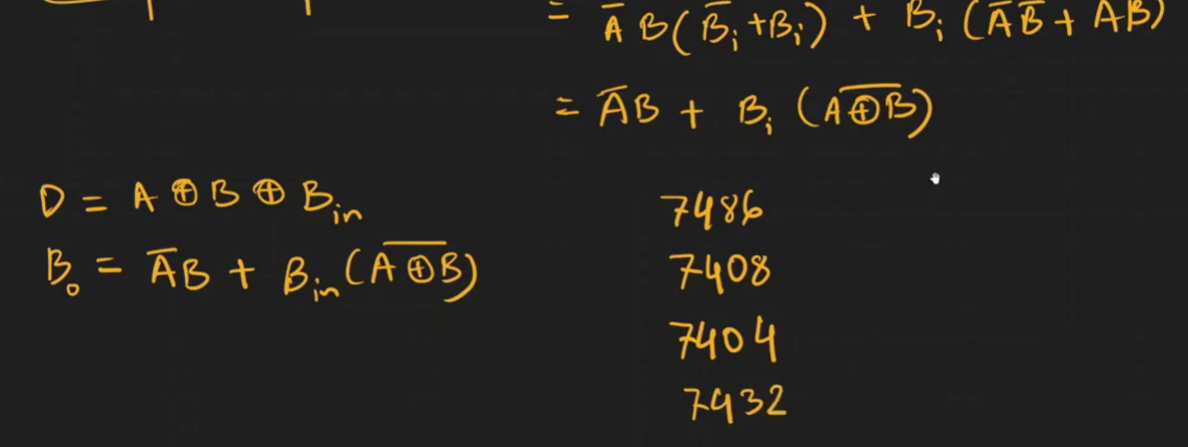 = A̅ B ( B̅ᵢ + Bᵢ ) + Bᵢ ( A̅ B̅ + A B )
= A̅ B + Bᵢ ( \overline{A ⊕ B} )
D = A ⊕ B ⊕ B_in
B₀ = A̅ B + B_in ( \overline{A ⊕ B} )
7486
7408
7404
7432